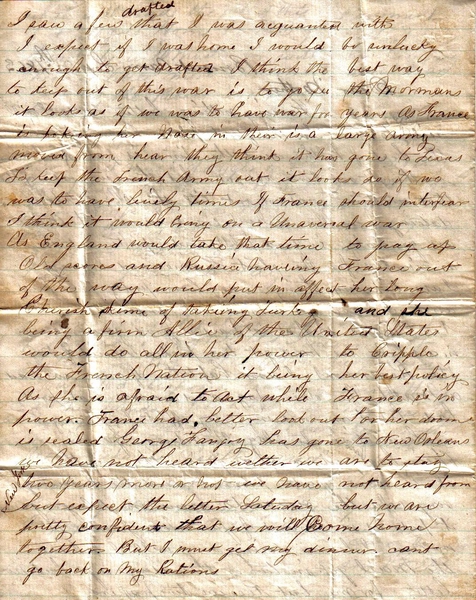 drafted
I saw a few that I was acquanted with
I expect if I was home I would be unlucky
enough to get drafted I think the best way
to keep out of this war is to go to the Mormans
it looks as if we was to have war for years As France
is her in their is a large army
moved from hear they think it has gone to Texas
To keep the French Army out it looks as if we
was to have lively times If France should interfear
I think it would bring on a Universal war
As England would take that time to pay up
Old scores and Russia having France out
of the way would put in affect her long
Cherish Sceme of taking Turkey and she
being a firm Allie of the United States
would do all in her power to Cripple
the French Nation it being her best policy
As she is afraid to Act while France is in
power. France had better look out for her doom
is sealed George has gone to New Orleans
we have not heard wether we are to stay
two years more or not we have not heard from
but expect the letter Saturday but we are
pretty confident that we will Come home
together. But I must get my dinner cant
go back on My Rations